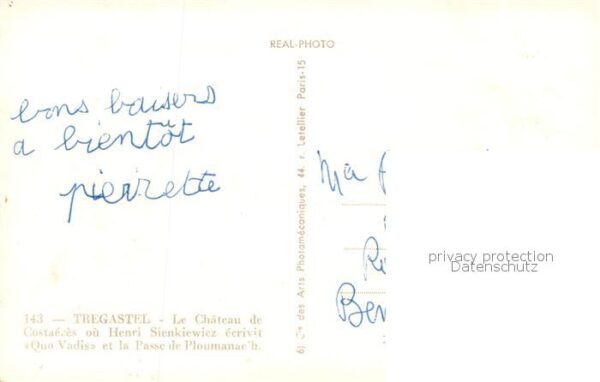 REAL-PHOTO
bons baisers
a bientôt
pierrette
143 — TREGASTEL - Le Château de
Costaérès où Henri Sienkiewicz écrivit
«Quo Vadis» et la Passe de Ploumanac'h.
6) Cie des Arts Photomécaniques, 44. r. Letellier Paris-15
Ma
Ben
privacy protection
Datenschutz